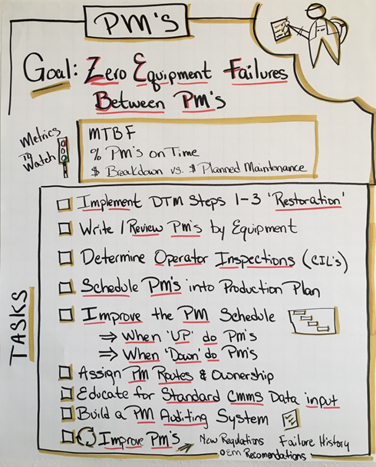 PM's
Goal: Zero Equipment Failures
Between PM's
Metrics
to
Watch
MTBF
% PM's on Time
$ Breakdown vs. $ Planned Maintenance
TASKS
Implement DTM Steps 1-3 'Restoration'
Write / Review PM's by Equipment
Determine Operator Inspections (CIL's)
Schedule PM's into Production Plan
Improve the PM Schedule
⇒ When 'UP' do PM's
⇒ When 'Down' do PM's
Assign PM Routes & Ownership
Educate for Standard CMMS Data input
Build a PM Auditing System
Improve PM's → New Regulations Failure History
OEM Recomendations